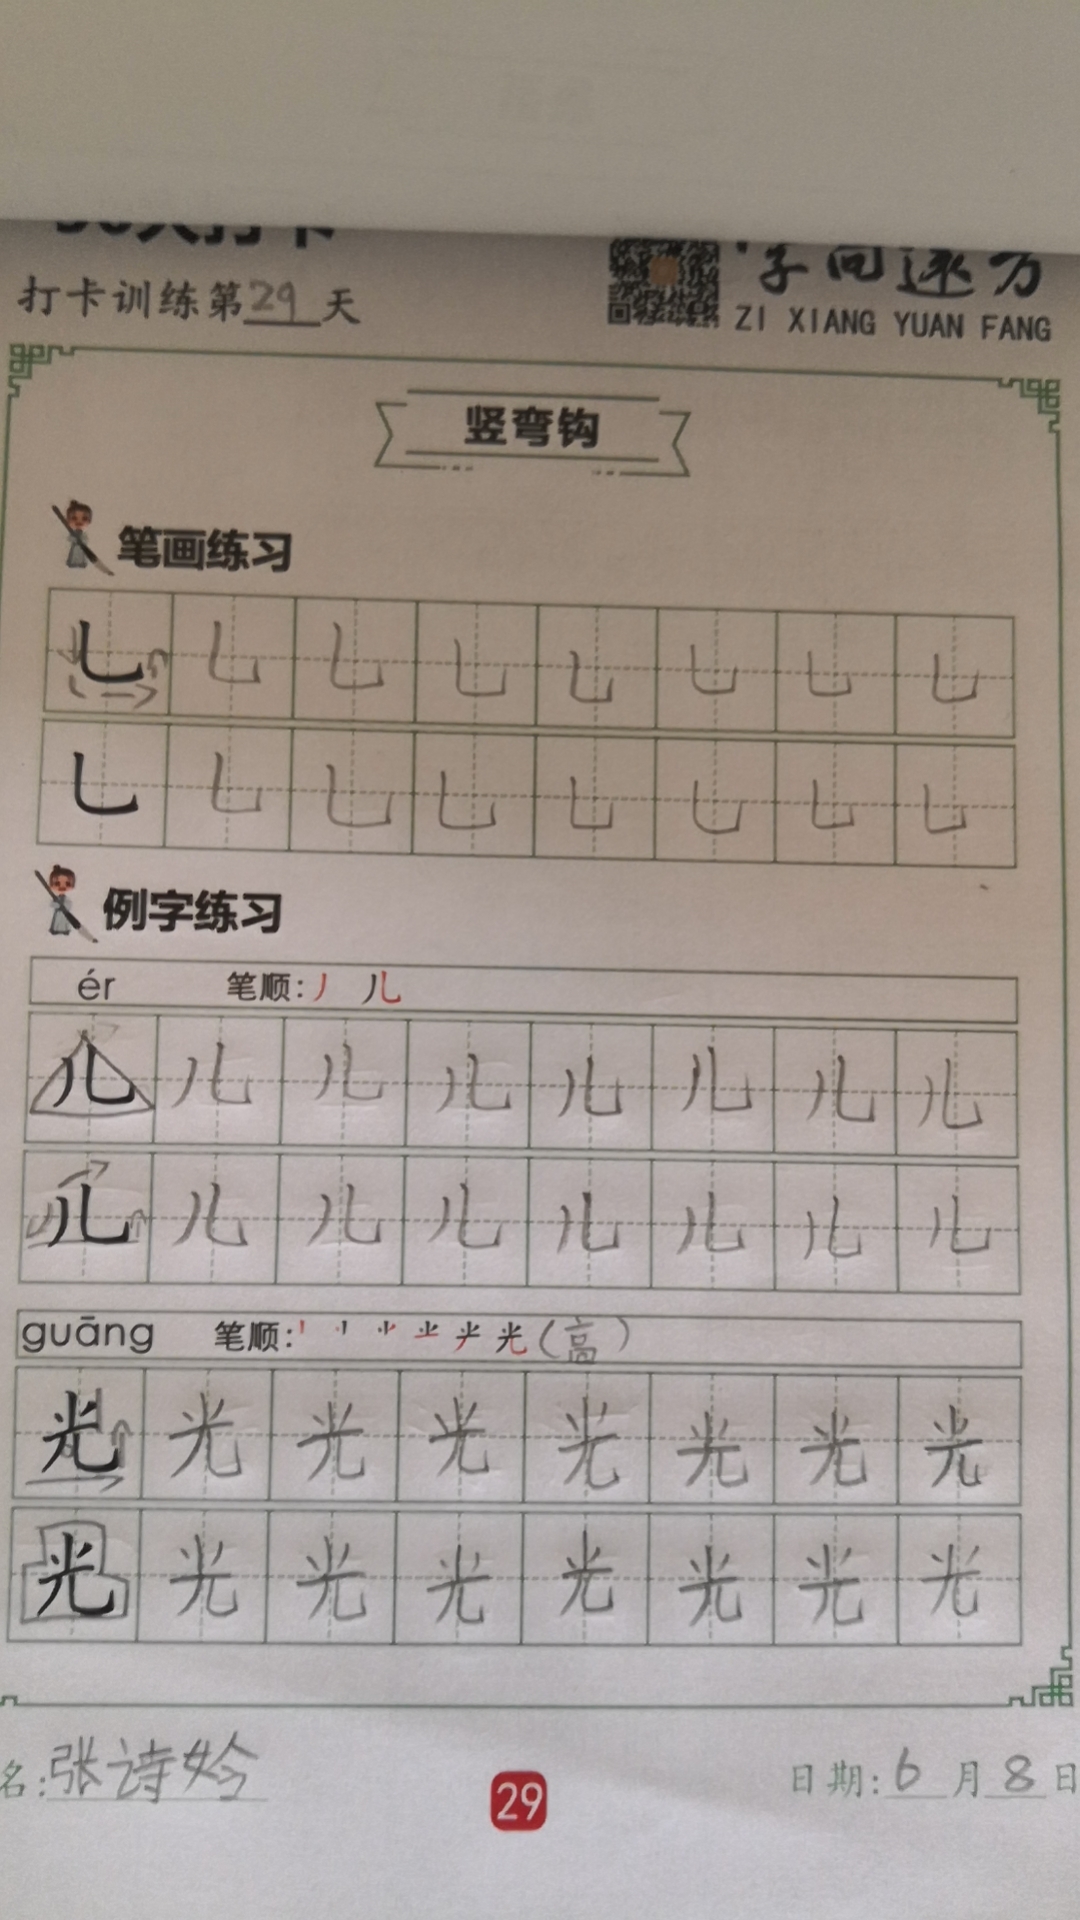 打卡训练第29天
字向远方
ZI XIANG YUAN FANG
竖弯钩
笔画练习
乚 乚 乚 乚 乚 乚 乚 乚
乚 乚 乚 乚 乚 乚 乚 乚
例字练习
ér 笔顺: 丿 儿
儿 儿 儿 儿 儿 儿 儿 儿
儿 儿 儿 儿 儿 儿 儿 儿
guāng 笔顺: 光(高)
光 光 光 光 光 光 光 光
光 光 光 光 光 光 光 光
名:张诗妗
29
日期:6月8日